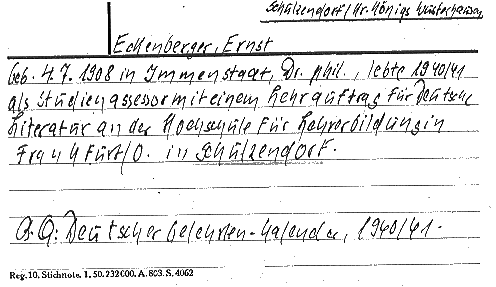 Schulzendorf/Kr. Königs Wusterhausen
Eckenberger, Ernst
geb. 4. 7. 1908 in Immenstadt, Dr. phil., lebte 1940/41
als Studienassessor mit einem Lehrauftrag für Deutsche
Literatur an der Hochschule für Lehrerbildung in
Frankfurt/O. in Schulzendorf.
Deutscher Gelehrten-Kalender, 1940/41.
Reg. 10. Stichnote. 1. 50. 232 000. A. 803. S. 4062